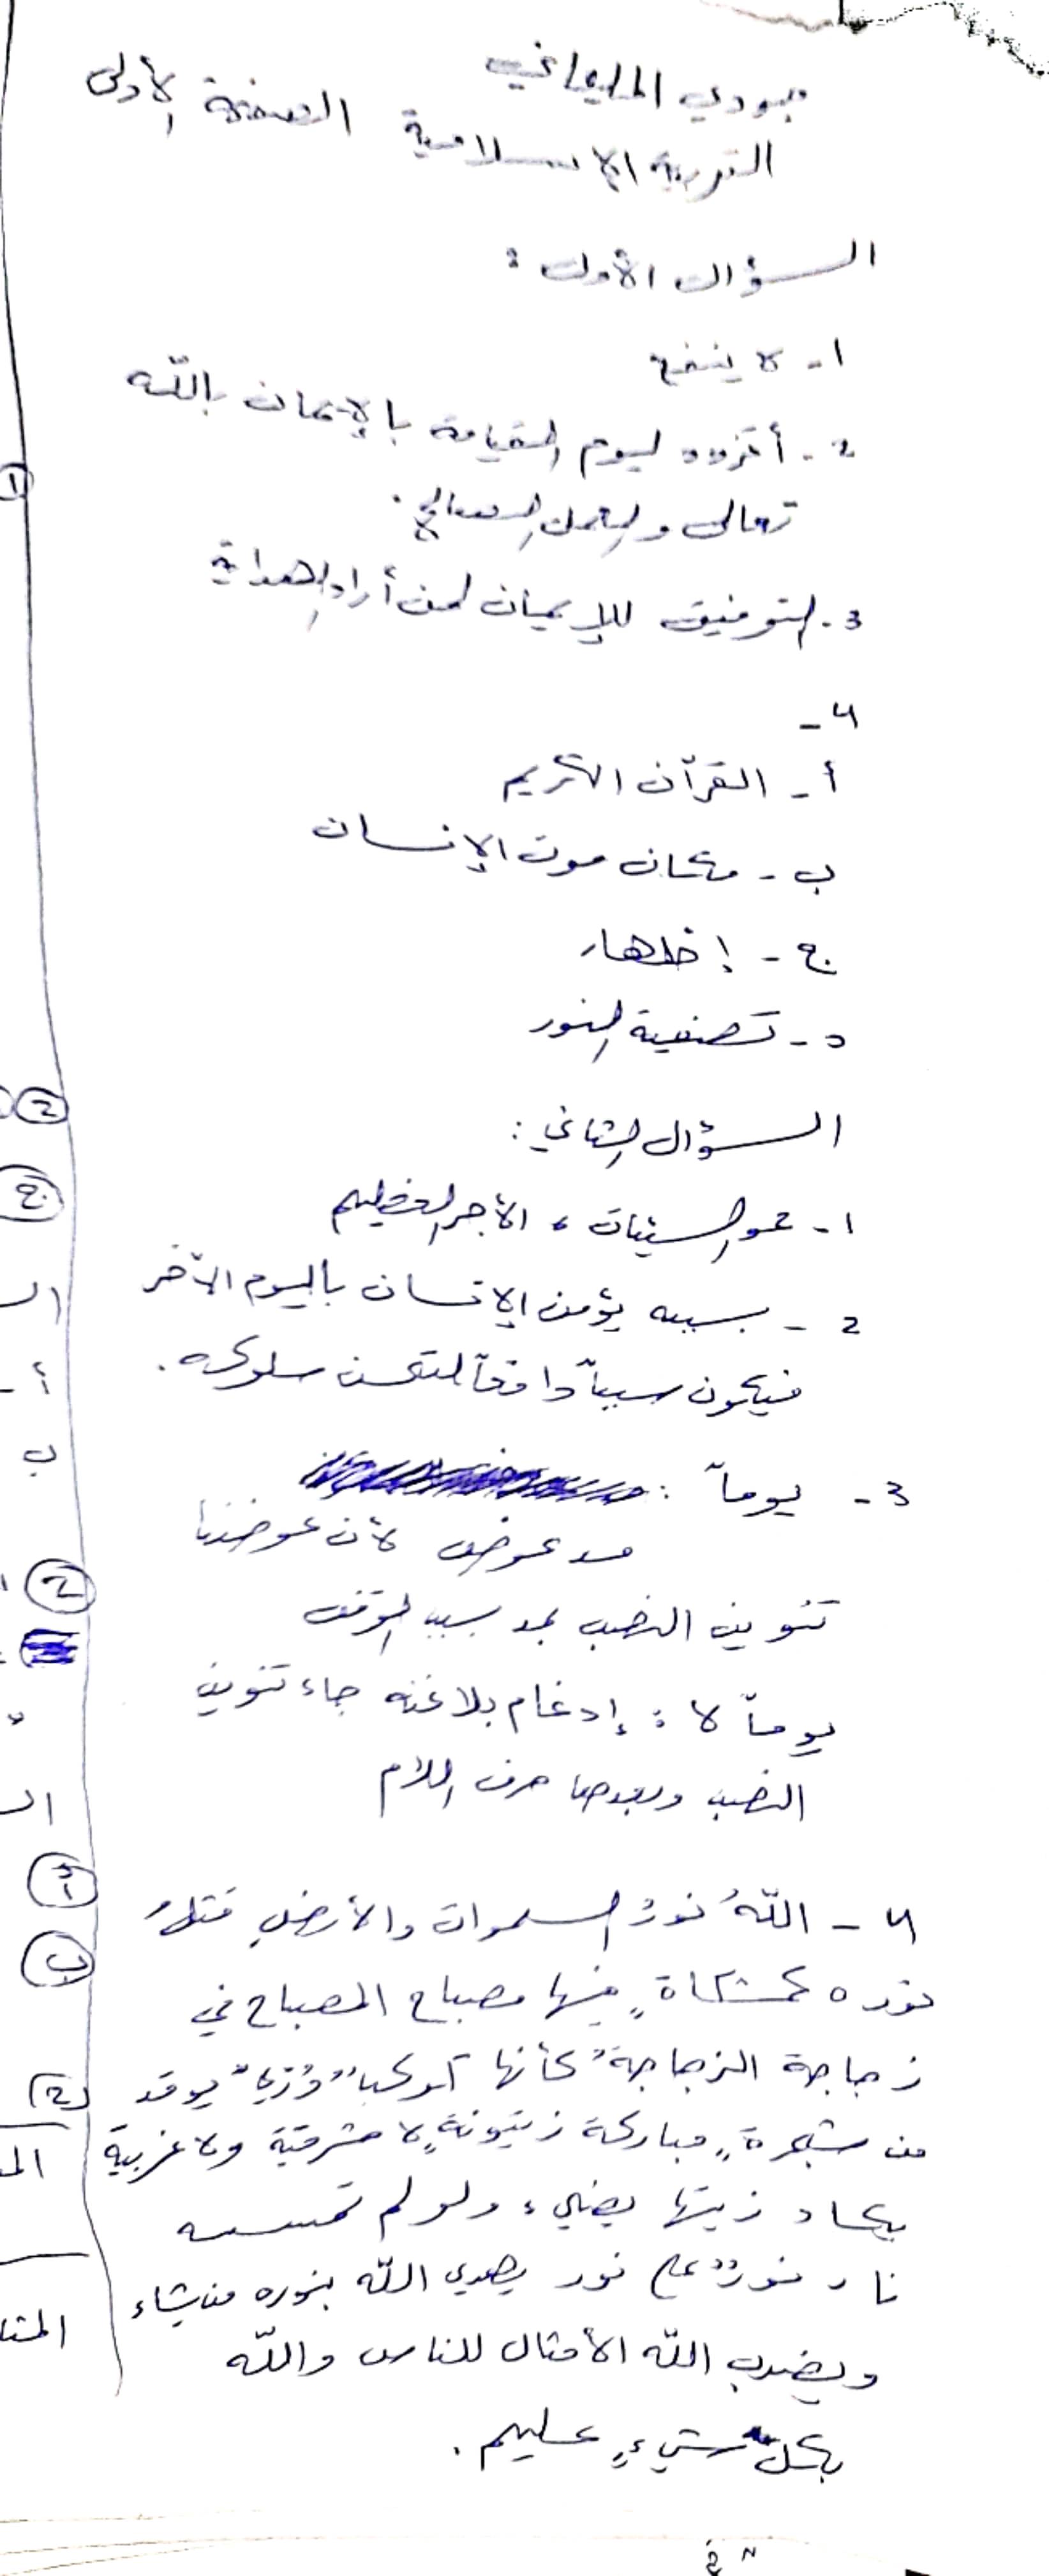 التربية الإسلامية الصفحة الأولى
السؤال الأول :
1- لا ينفع
2- أتزود ليوم القيامة بالإيمان بالله
تعالى والعمل الصالح.
3- التوفيق للإيمان لمن أراد الهداية
4-
أ- القرآن الكريم
ب- مكان موت الإنسان
ج- إظهار
د- تصفية النور
السؤال الثاني:
1- محو السيئات، الأجر العظيم
2- بسببه يؤمن الإنسان باليوم الآخر
فيكون سبباً دافعاً لتحسن سلوكه.
3- يوماً :
مد عوض لأن عوضنا
تنوين النصب بمد بسبب الوقف
يوماً لا : إدغام بلا غنه جاء تنوين
النصب وبعدها حرف اللام
4- اللّهُ نورُ السموات والأرضِ مَثَلُ
نوره كمشكاةٍ فيها مصباح المصباح في
زجاجة الزجاجةُ كأنها كوكبٌ دُرّيٌ يوقد
من شجرةٍ مباركة زيتونةٍ لا شرقية ولا غربية
يكاد زيتها يضيء ولو لم تمسسه
نار نورٌ على نور يهدي اللّه بنوره من يشاء
ويضرب اللّه الأمثال للناس واللّه
بكل شيءٍ عليم.
1
2
ج
ال
أ-
ب
2
ال
أ
ب
2